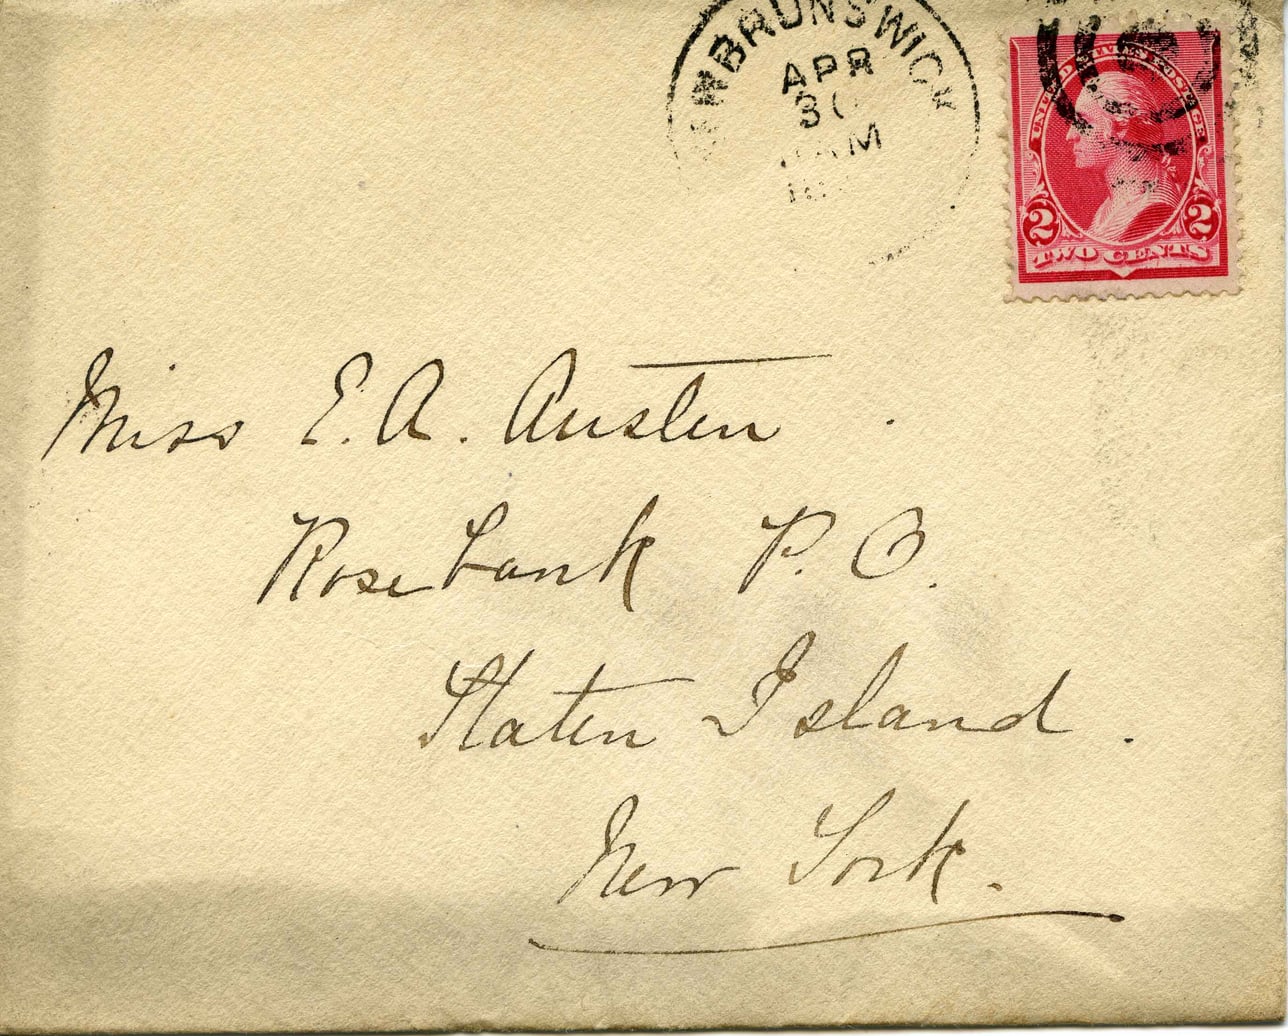 BRUNSWICK
APR
30
AM
UNITED STATES POSTAGE
2 2
TWO CENTS
Miss E. A. Austen
Rosebank P. O.
Staten Island.
New York.